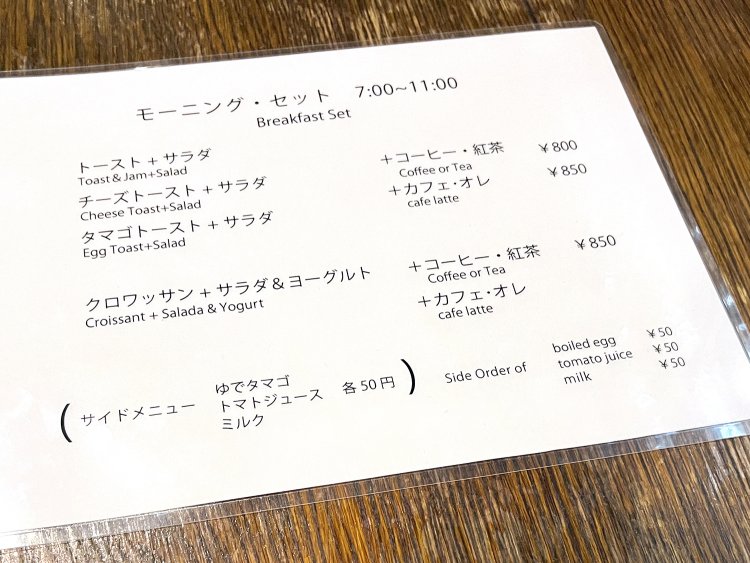 モーニング・セット 7:00~11:00
Breakfast Set
トースト + サラダ ＋コーヒー・紅茶 ￥800
Toast & Jam+Salad Coffee or Tea
チーズトースト + サラダ ＋カフェ・オレ ￥850
Cheese Toast+Salad cafe latte
タマゴトースト + サラダ
Egg Toast+Salad
クロワッサン + サラダ＆ヨーグルト ＋コーヒー・紅茶 ￥850
Croissant + Salada & Yogurt Coffee or Tea
＋カフェ・オレ
cafe latte
( サイドメニュー ゆでタマゴ
トマトジュース 各50円 )
ミルク
Side Order of boiled egg ￥50
tomato juice ￥50
milk ￥50